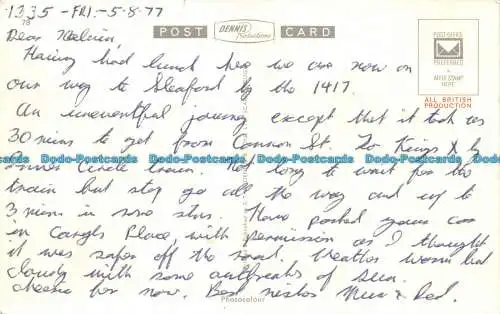 1335 - FRI. - 5.8.77
78
POST
DENNIS
Productions
CARD
POST OFFICE
PREFERRED
AFFIX STAMP
HERE
ALL BRITISH
PRODUCTION
Dear
Having had lunch here we are now on
our way to Sleaford by the 1417.
An uneventful journey except that it took us
30 mins to get from Cannon St. to Kings X by
Inner Circle train. Not long to wait for the
train but stop go all the way and up to
3 mins in some stns. Have parked your car
in Place, with permission as I thought
it was safer off the road. Weather warm but
cloudy with some outbreaks of sun.
Cheerio for now. Best wishes Mum & Dad.
Photocolour
Dodo-Postcards Dodo-Postcards Dodo-Postcards Dodo-Postcards
Dodo-Postcards Dodo-Postcards Dodo-Postcards Dodo-Postcards